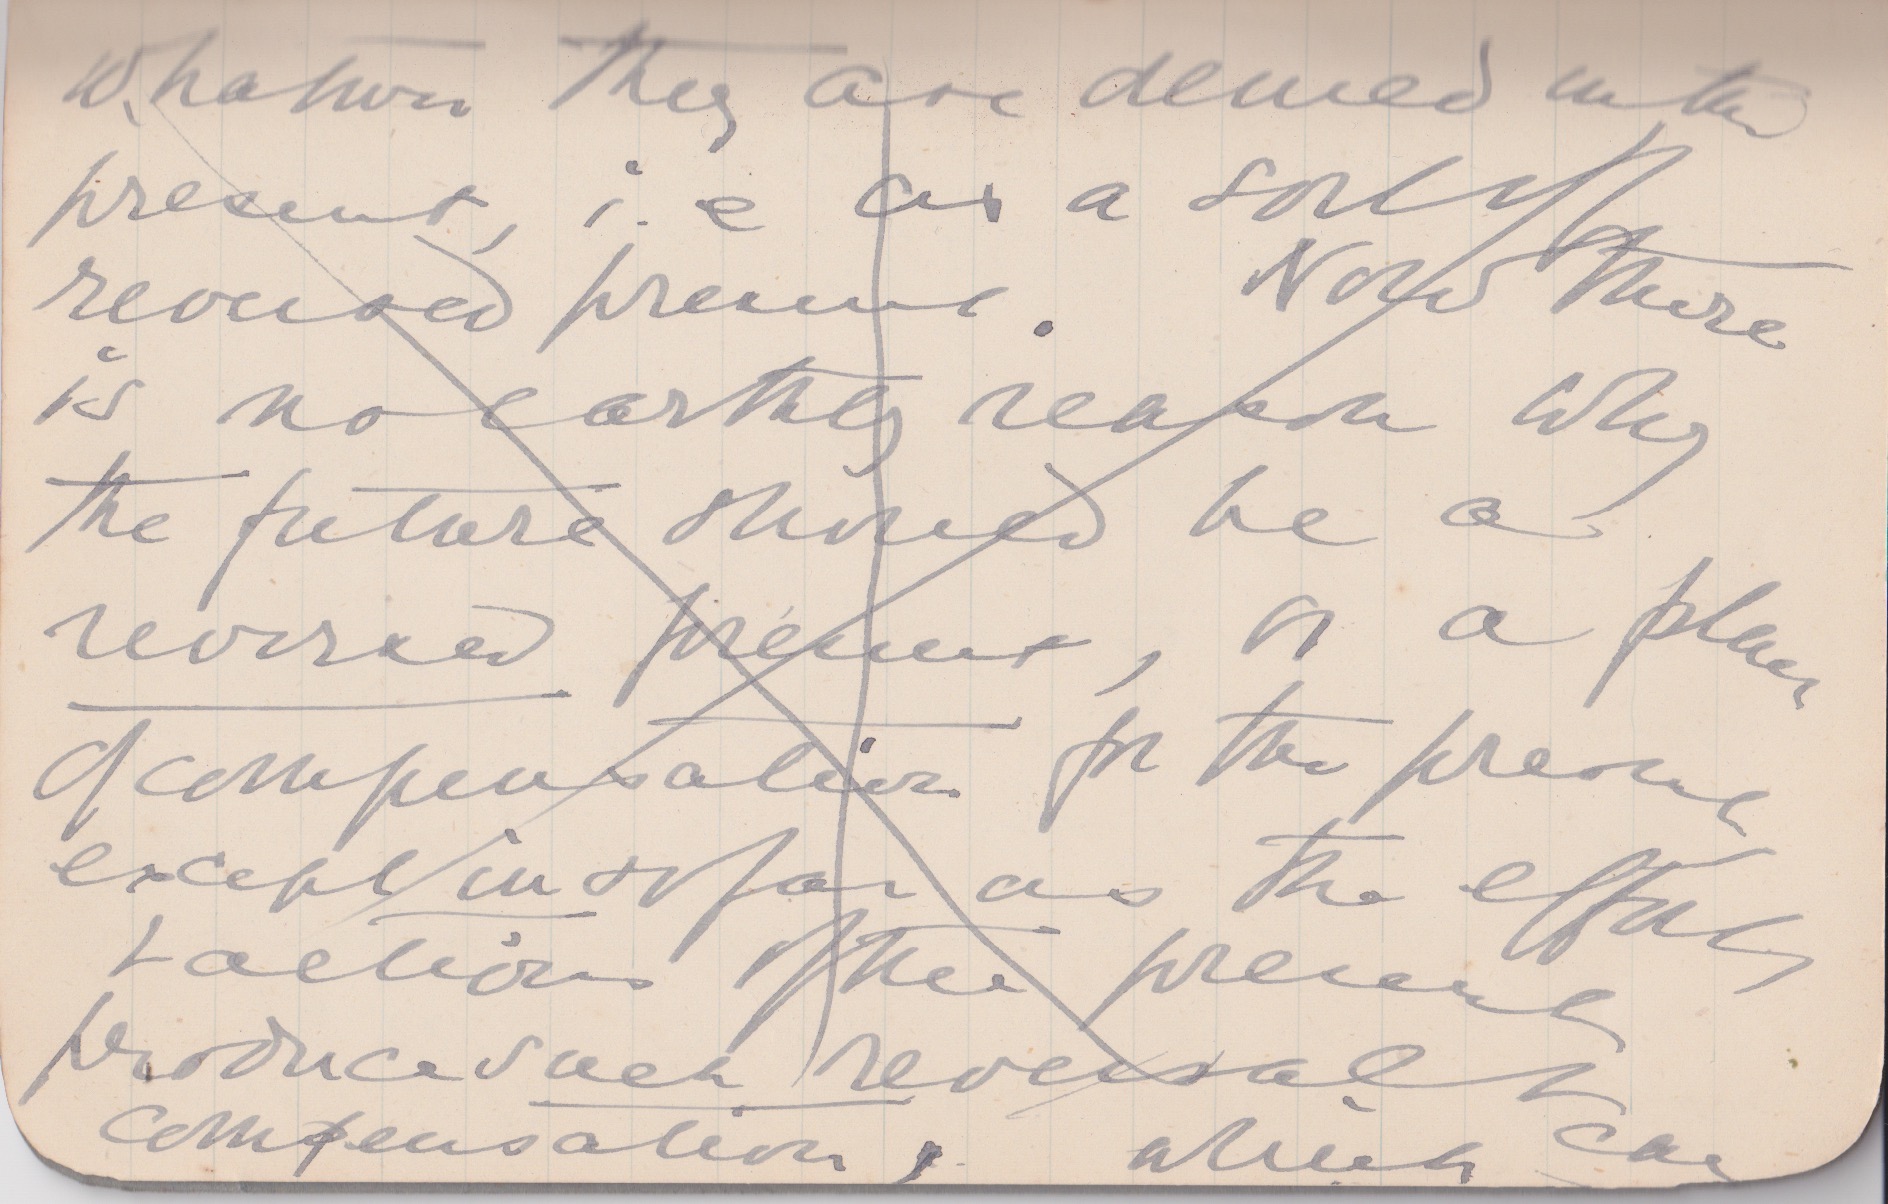 whatever they are denied in the
present, i.e as a sort of
reversed present. Now there
is no earthly reason why
the future should be a
reversed present, or a place
of compensation for the present
except in so far as the efforts
+ actions of the present
produce such reversal &
compensation, which can